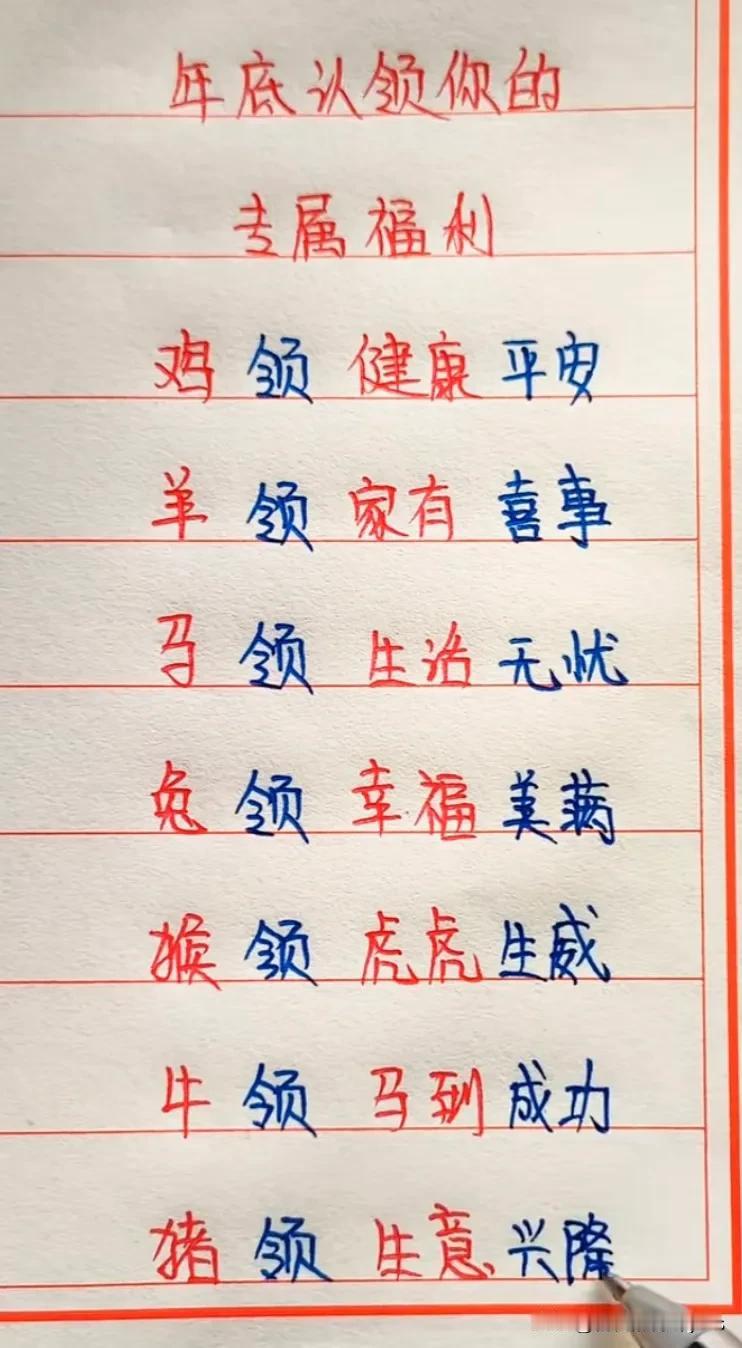 年底认领你的
专属福利
鸡 领 健康 平安
羊 领 家有 喜事
马 领 生活 无忧
兔 领 幸福 美满
猴 领 虎虎 生威
牛 领 马到 成功
猪 领 生意 兴隆